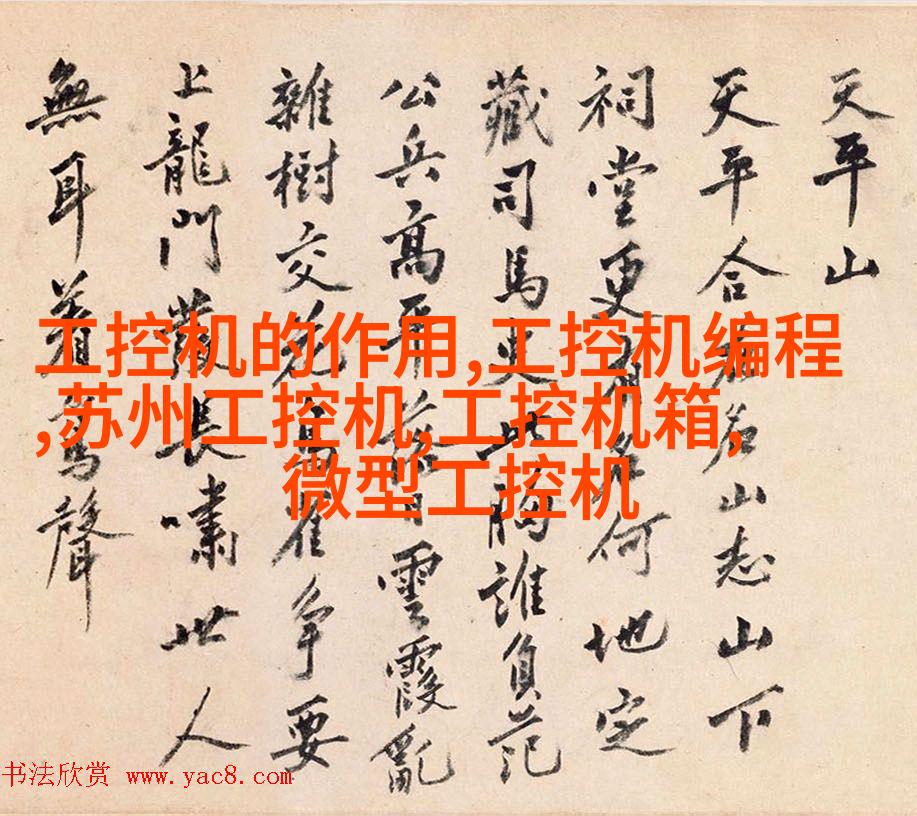 天平山
天平合名山志山下
祠堂更何地定
藏司馬史此胸誰負范
公兵高平落日雲霞亂
雜樹交花鳥雀争要
上龍門長嘯世人
無耳着聲
工控机的作用,工控机编程
,苏州工控机,工控机箱,
微型工控机
书法欣赏 www.yac8.com